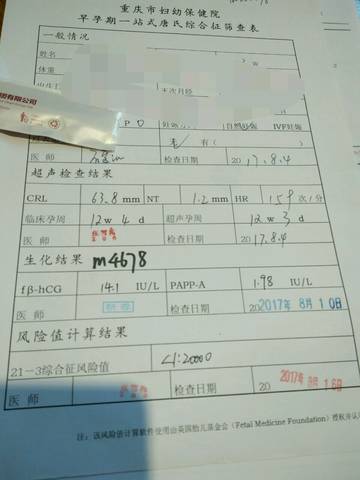 重庆市妇幼保健院
早孕期一站式唐氏综合征筛查表
一般情况
姓名
体重
末次月经
有限公司
P 0
自然妊娠 IVF妊娠
无/ 有(
医师
检查日期 2017.8.4
超声检查结果
CRL 63.8 mm NT 1.2 mm HR 159 次/分
临床孕周 12w 4 d 超声孕周 12 w 3 d
医师 检查日期 2017.8.4
生化结果 m4678
fβ-hCG 14.1 IU/L PAPP-A 1.98 IU/L
医师 检查日期 20 2017年 8月 10日
风险值计算结果
21-3综合征风险值 <1:20000
医师 检查日期 20 2017年 8月 16日
注：该风险值计算软件使用由英国胎儿基金会（Fetal Medicine Foundation）授权并认